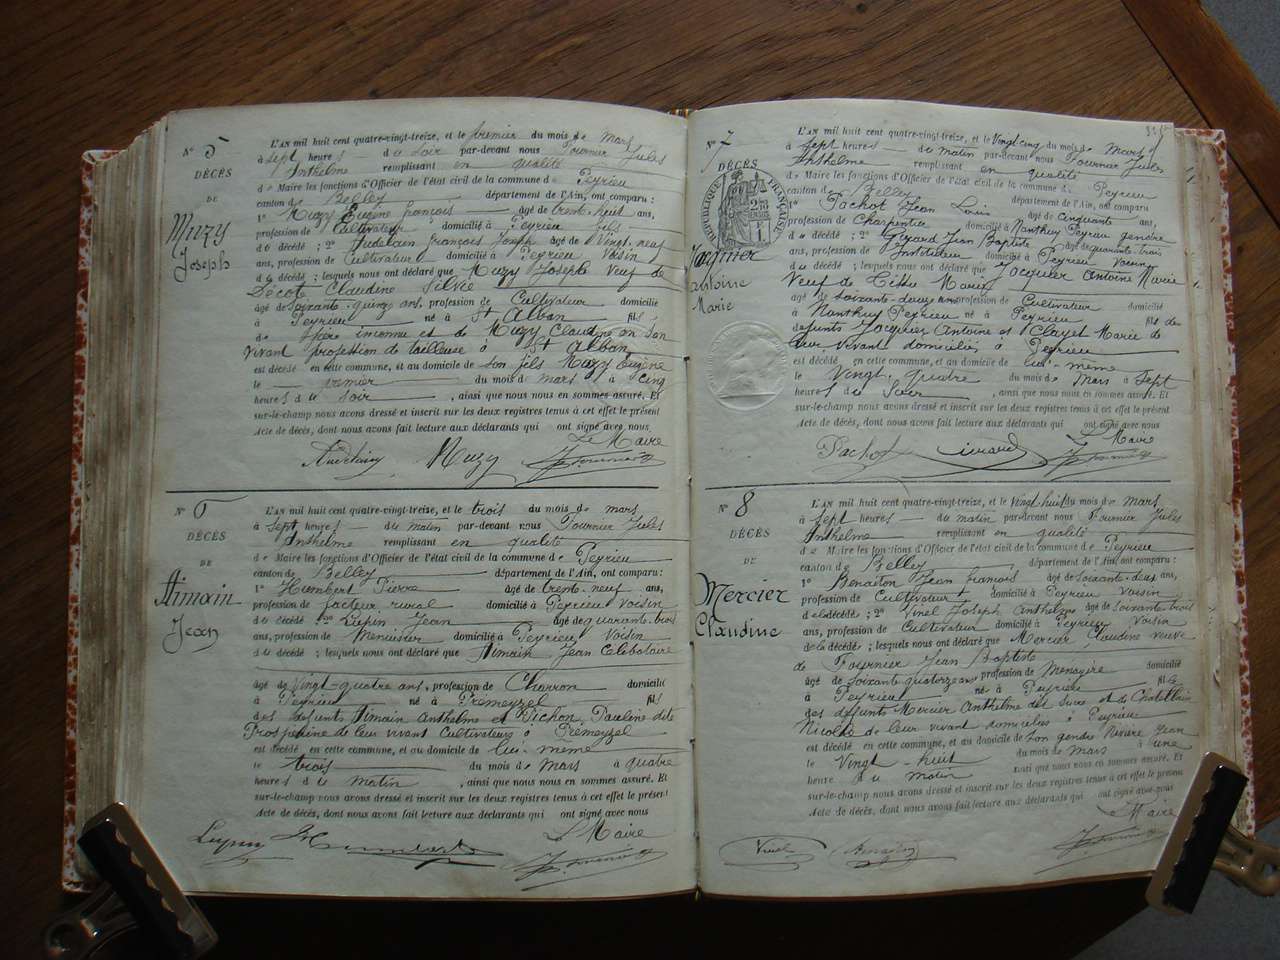 N° 5
DÉCÈS
DE
Muzy
Joseph
L'AN mil huit cent quatre-vingt-treize, et le premier du mois de Mars
à sept heures du soir par-devant nous Fournier Jules
Anthelme remplissant en qualité
de Maire les fonctions d'Officier de l'état civil de la commune de Peyrieu
canton de Belley département de l'Ain, ont comparu :
1° Muzy Eugène françois âgé de trente-huit ans,
profession de Cultivateur domicilié à Peyrieu fils
du décédé ; 2° françois Joseph âgé de Vingt-neuf
ans, profession de Cultivateur domicilié à Peyrieu Voisin
du décédé ; lesquels nous ont déclaré que Muzy Joseph Veuf de
Décot Claudine Silvie
âgé de soixante-quinze ans, profession de Cultivateur domicilié
à Peyrieu né à St Alban fils
de père inconnu et de Muzy Claudine en son
vivant profession de tailleuse à St Alban
est décédé en cette commune, et au domicile de son fils Muzy Eugène
le premier du mois de mars à cinq
heures du soir , ainsi que nous nous en sommes assuré. Et
sur-le-champ nous avons dressé et inscrit sur les deux registres tenus à cet effet le présent
Acte de décès, dont nous avons fait lecture aux déclarants qui ont signé avec nous
Le Maire
Muzy
N° 6
DÉCÈS
DE
Aimain
Jean
L'AN mil huit cent quatre-vingt-treize, et le trois du mois de mars
à Sept heures du matin par-devant nous Fournier Jules
Anthelme remplissant en qualité
de Maire les fonctions d'Officier de l'état civil de la commune de Peyrieu
canton de Belley département de l'Ain, ont comparu :
1° Humbert Pierre âgé de trente-neuf ans,
profession de facteur rural domicilié à Peyrieu Voisin
du décédé 2° Lupin Jean âgé de quarante-trois
ans, profession de Menuisier domicilié à Peyrieu Voisin
du décédé ; lesquels nous ont déclaré que Aimain Jean
âgé de Vingt-quatre ans, profession de Charron domicilié
à Peyrieu né à Premeyzel fils
des défunts Aimain Anthelme et Pichon Pauline dite
Prosperine de leur vivant Cultivateurs à Premeyzel
est décédé en cette commune, et au domicile de lui-même
le trois du mois de Mars à quatre
heures du matin , ainsi que nous nous en sommes assuré. Et
sur-le-champ nous avons dressé et inscrit sur les deux registres tenus à cet effet le présent
Acte de décès, dont nous avons fait lecture aux déclarants qui ont signé avec nous
Le Maire
Humbert
N° 7
DÉCÈS
RÉPUBLIQUE FRANÇAISE
Jacquier
Antoine
Marie
L'AN mil huit cent quatre-vingt-treize, et le Vingt cinq du mois de Mars
à Sept heures du matin par-devant nous Fournier Jules
Anthelme remplissant en qualité
de Maire les fonctions d'Officier de l'état civil de la commune de Peyrieu
canton de Belley département de l'Ain, ont comparu
1° Pachot Jean Louis âgé de Cinquante ans,
profession de Charpentier domicilié à Nanthuy Peyrieu gendre
du décédé ; 2° Girard Jean Baptiste âgé de quarante-trois
ans, profession de Instituteur domicilié à Peyrieu Voisin
du décédé ; lesquels nous ont déclaré que Jacquier Antoine Marie
Veuf de Marie
âgé de Soixante-douze ans profession de Cultivateur domicilié
à Nanthuy Peyrieu né à Peyrieu fils de
défunts Jacquier Antoine et Clayet Marie de
leur vivant domiciliés à Peyrieu
est décédé en cette commune, et au domicile de lui-même
le Vingt-quatre du mois de Mars à Sept
heures du Soir , ainsi que nous nous en sommes assuré. Et
sur-le-champ nous avons dressé et inscrit sur les deux registres tenus à cet effet le présent
Acte de décès, dont nous avons fait lecture aux déclarants qui ont signé avec nous
Le Maire
Pachot Girard
N° 8
DÉCÈS
DE
Mercier
Claudine
L'AN mil huit cent quatre-vingt-treize, et le Vingt-huit du mois de mars
à Sept heures du matin par-devant nous Fournier Jules
Anthelme remplissant en qualité
de Maire les fonctions d'Officier de l'état civil de la commune de Peyrieu
canton de Belley département de l'Ain, ont comparu :
1° Benaiton Jean françois âgé de Soixante-deux ans,
profession de Cultivateur domicilié à Peyrieu Voisin
de la décédé ; 2° Vinel Joseph Anthelme âgé de Soixante trois
ans, profession de Cultivateur domicilié à Peyrieu Voisin
de la décédé ; lesquels nous ont déclaré que Mercier Claudine veuve
de Fournier Jean Baptiste
âgé de Soixante quatorze ans profession de Ménagère domicilié
à Peyrieu né à Peyrieu fille
des défunts Mercier Anthelme et de Chatillon
Nicolde de leur vivant domiciliés à Peyrieu
est décédé en cette commune, et au domicile de son gendre Jean
le Vingt-huit du mois de Mars à une
heure du matin ainsi que nous nous en sommes assuré. Et
sur-le-champ nous avons dressé et inscrit sur les deux registres tenus à cet effet le présent
Acte de décès, dont nous avons fait lecture aux déclarants qui ont signé avec nous
Le Maire
Vinel